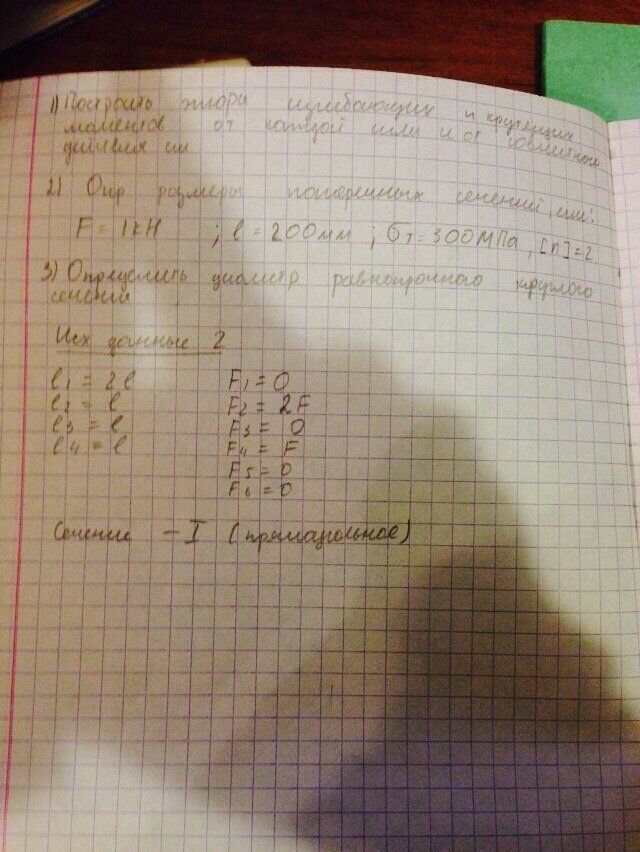 1) Построить эпюры изгибающих и крутящих
моментов от каждой силы и от совместного
действия их
2) Опр размеры поперечных сечений, если:
F = 1кН ; l = 200мм ; σт = 300МПа, [n] = 2
3) Определить диаметр равнопрочного круглого
сечения
Исх данные 2
l1 = 2l F1 = 0
l2 = l F2 = 2F
l3 = l F3 = 0
l4 = l F4 = F
F5 = 0
F6 = 0
Сечение - I (прямоугольное)